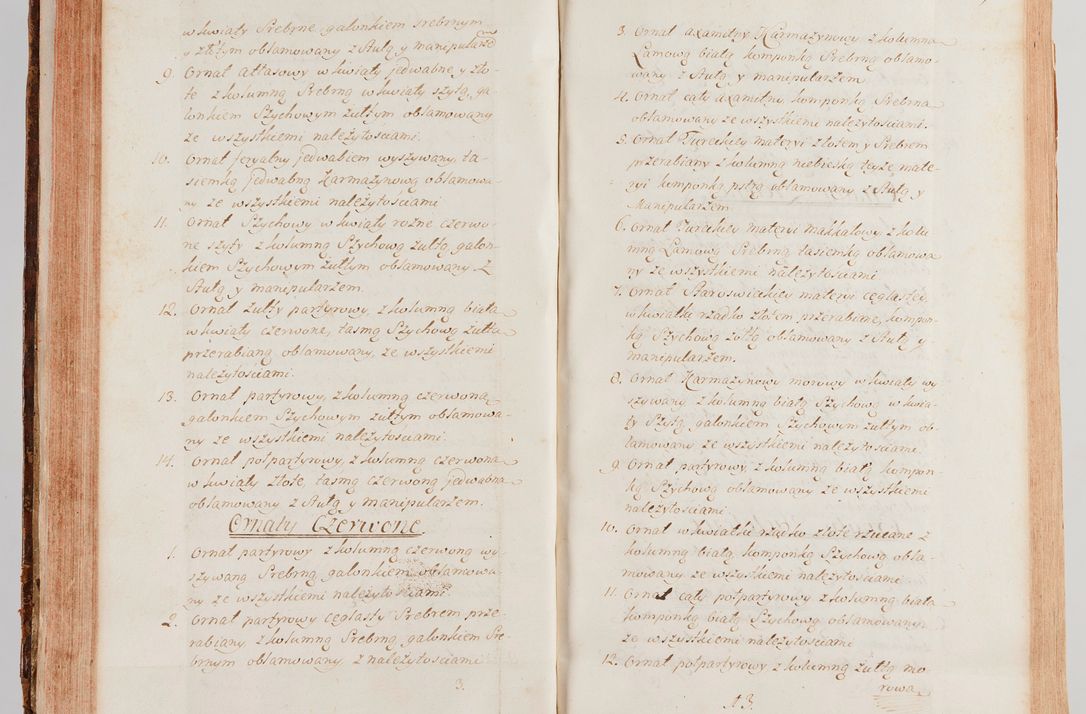 w kwiaty srebrne galonkiem srebrnym
y złotym oblamowany z stułą y manipularzem
9. Ornat attasowy w kwiaty jedwabne y zło-
te z kolumną srebrną w kwiaty szytą, ga-
lonkiem szychowym żułtym oblamowany
ze wszystkiemi należytościami.
10. Ornat feryalny jedwabiem wyszywany, ta-
siemką jedwabną karmazynową oblamowa-
ny ze wszystkiemi należytościami
11. Ornat szychowy w kwiaty rożne czerwo-
ne szyty z kolumną szychową żułtą, galon-
kiem szychowym żułtym oblamowany z
stułą y manipularzem.
12. Ornat żułty partyrowy, z kolumną białą
w kwiaty czerwone, tasmą szychową żułtą
przerabianą oblamowany, ze wszystkiemi
należytościami.
13. Ornat partyrowy, z kolumną czerwoną
galonkiem szychowym żułtym oblamowa-
ny ze wszystkiemi należytościami.
14. Ornat połpartyrowy, z kolumną czerwoną
w kwiaty złote, tasmą czerwoną jedwabną
oblamowany z stułą y manipularzem.
Ornaty Czerwone.
1. Ornat partyrowy z kolumną czerwoną wy-
szywaną srebrną, galonkiem oblamowa-
ny ze wszystkiemi należytościami.
2. Ornat partyrowy ceglasty srebrem prze-
rabiany, z kolumną srebrną, galonkiem sre-
brnym oblamowany z należytościami
3.
3. Ornat axamitny karmazynowy z kolumną
lamową białą komponką srebrną oblamo-
wany z stułą y manipularzem
4. Ornat cały axamitny komponką srebrną
oblamowany ze wszystkiemi należytościami.
5. Ornat Tureckiey materyi złotem y srebrem
przerabiany z kolumną niebieską teyże mate-
ryi komponką pstrą oblamowany z stułą y
Manipularzem
6. Ornat Tureckiey materyi makkatowy z kolu
mną lamową srebrną tasiemką oblamowa
ny ze wszystkiemi należytościami
7. Ornat staroswieckiey materyi ceglastey
w kwiatki rzadko złotem przerabiane, kompon-
ką szychową żołtą oblamowany z stułą y
manipularzem.
8. Ornat karmazynowy morowy w kwiaty wy
szywany z kolumną białą szychową w kwia-
ty szytą galonkiem szychowym żułtym ob-
lamowany ze wszystkiemi należytościami.
9. Ornat partyrowy, z kolumną białą, kompon-
ką szychową oblamowany ze wszystkiemi
należytościami
10. Ornat w kwiatki rzadko złote rzucane z
kolumną białą, komponką szychową obla-
mowany ze wszystkiemi należytościami
11. Ornat cały połpartyrowy z kolumną białą
komponką białą szychową oblamowany
ze wszystkiemi należytościami
12. Ornat połpartyrowy z kolumną żułtą mo
rową